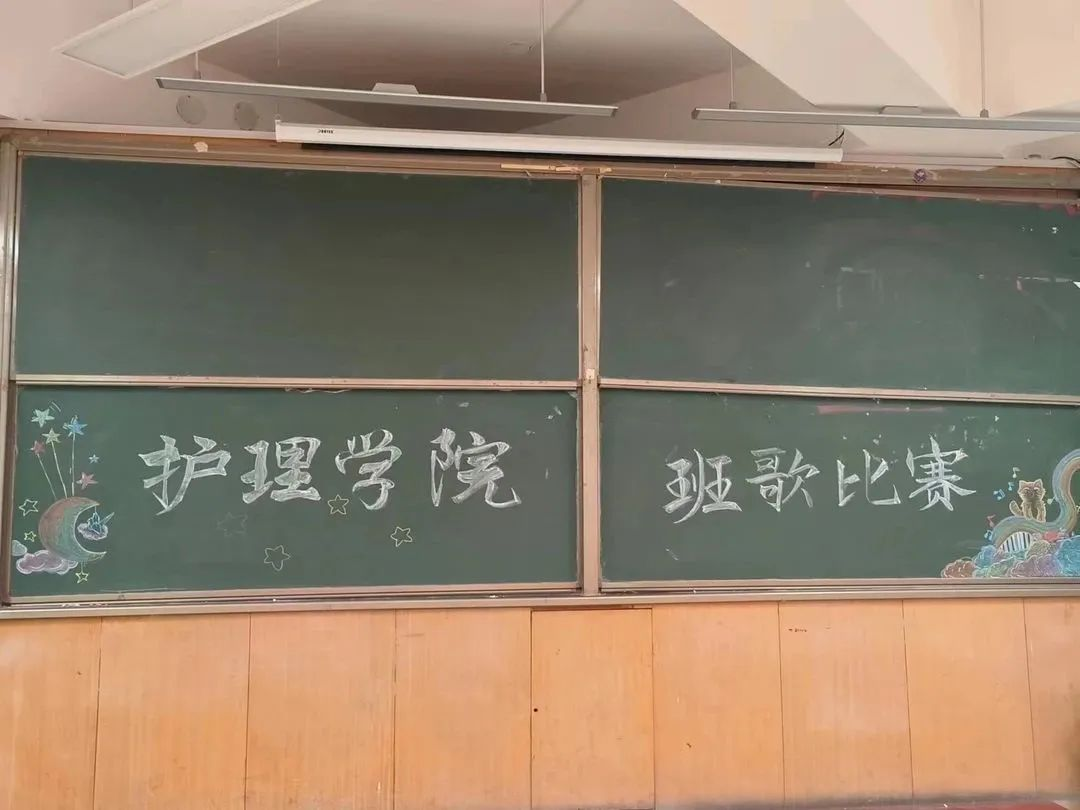 护理学院 班歌比赛